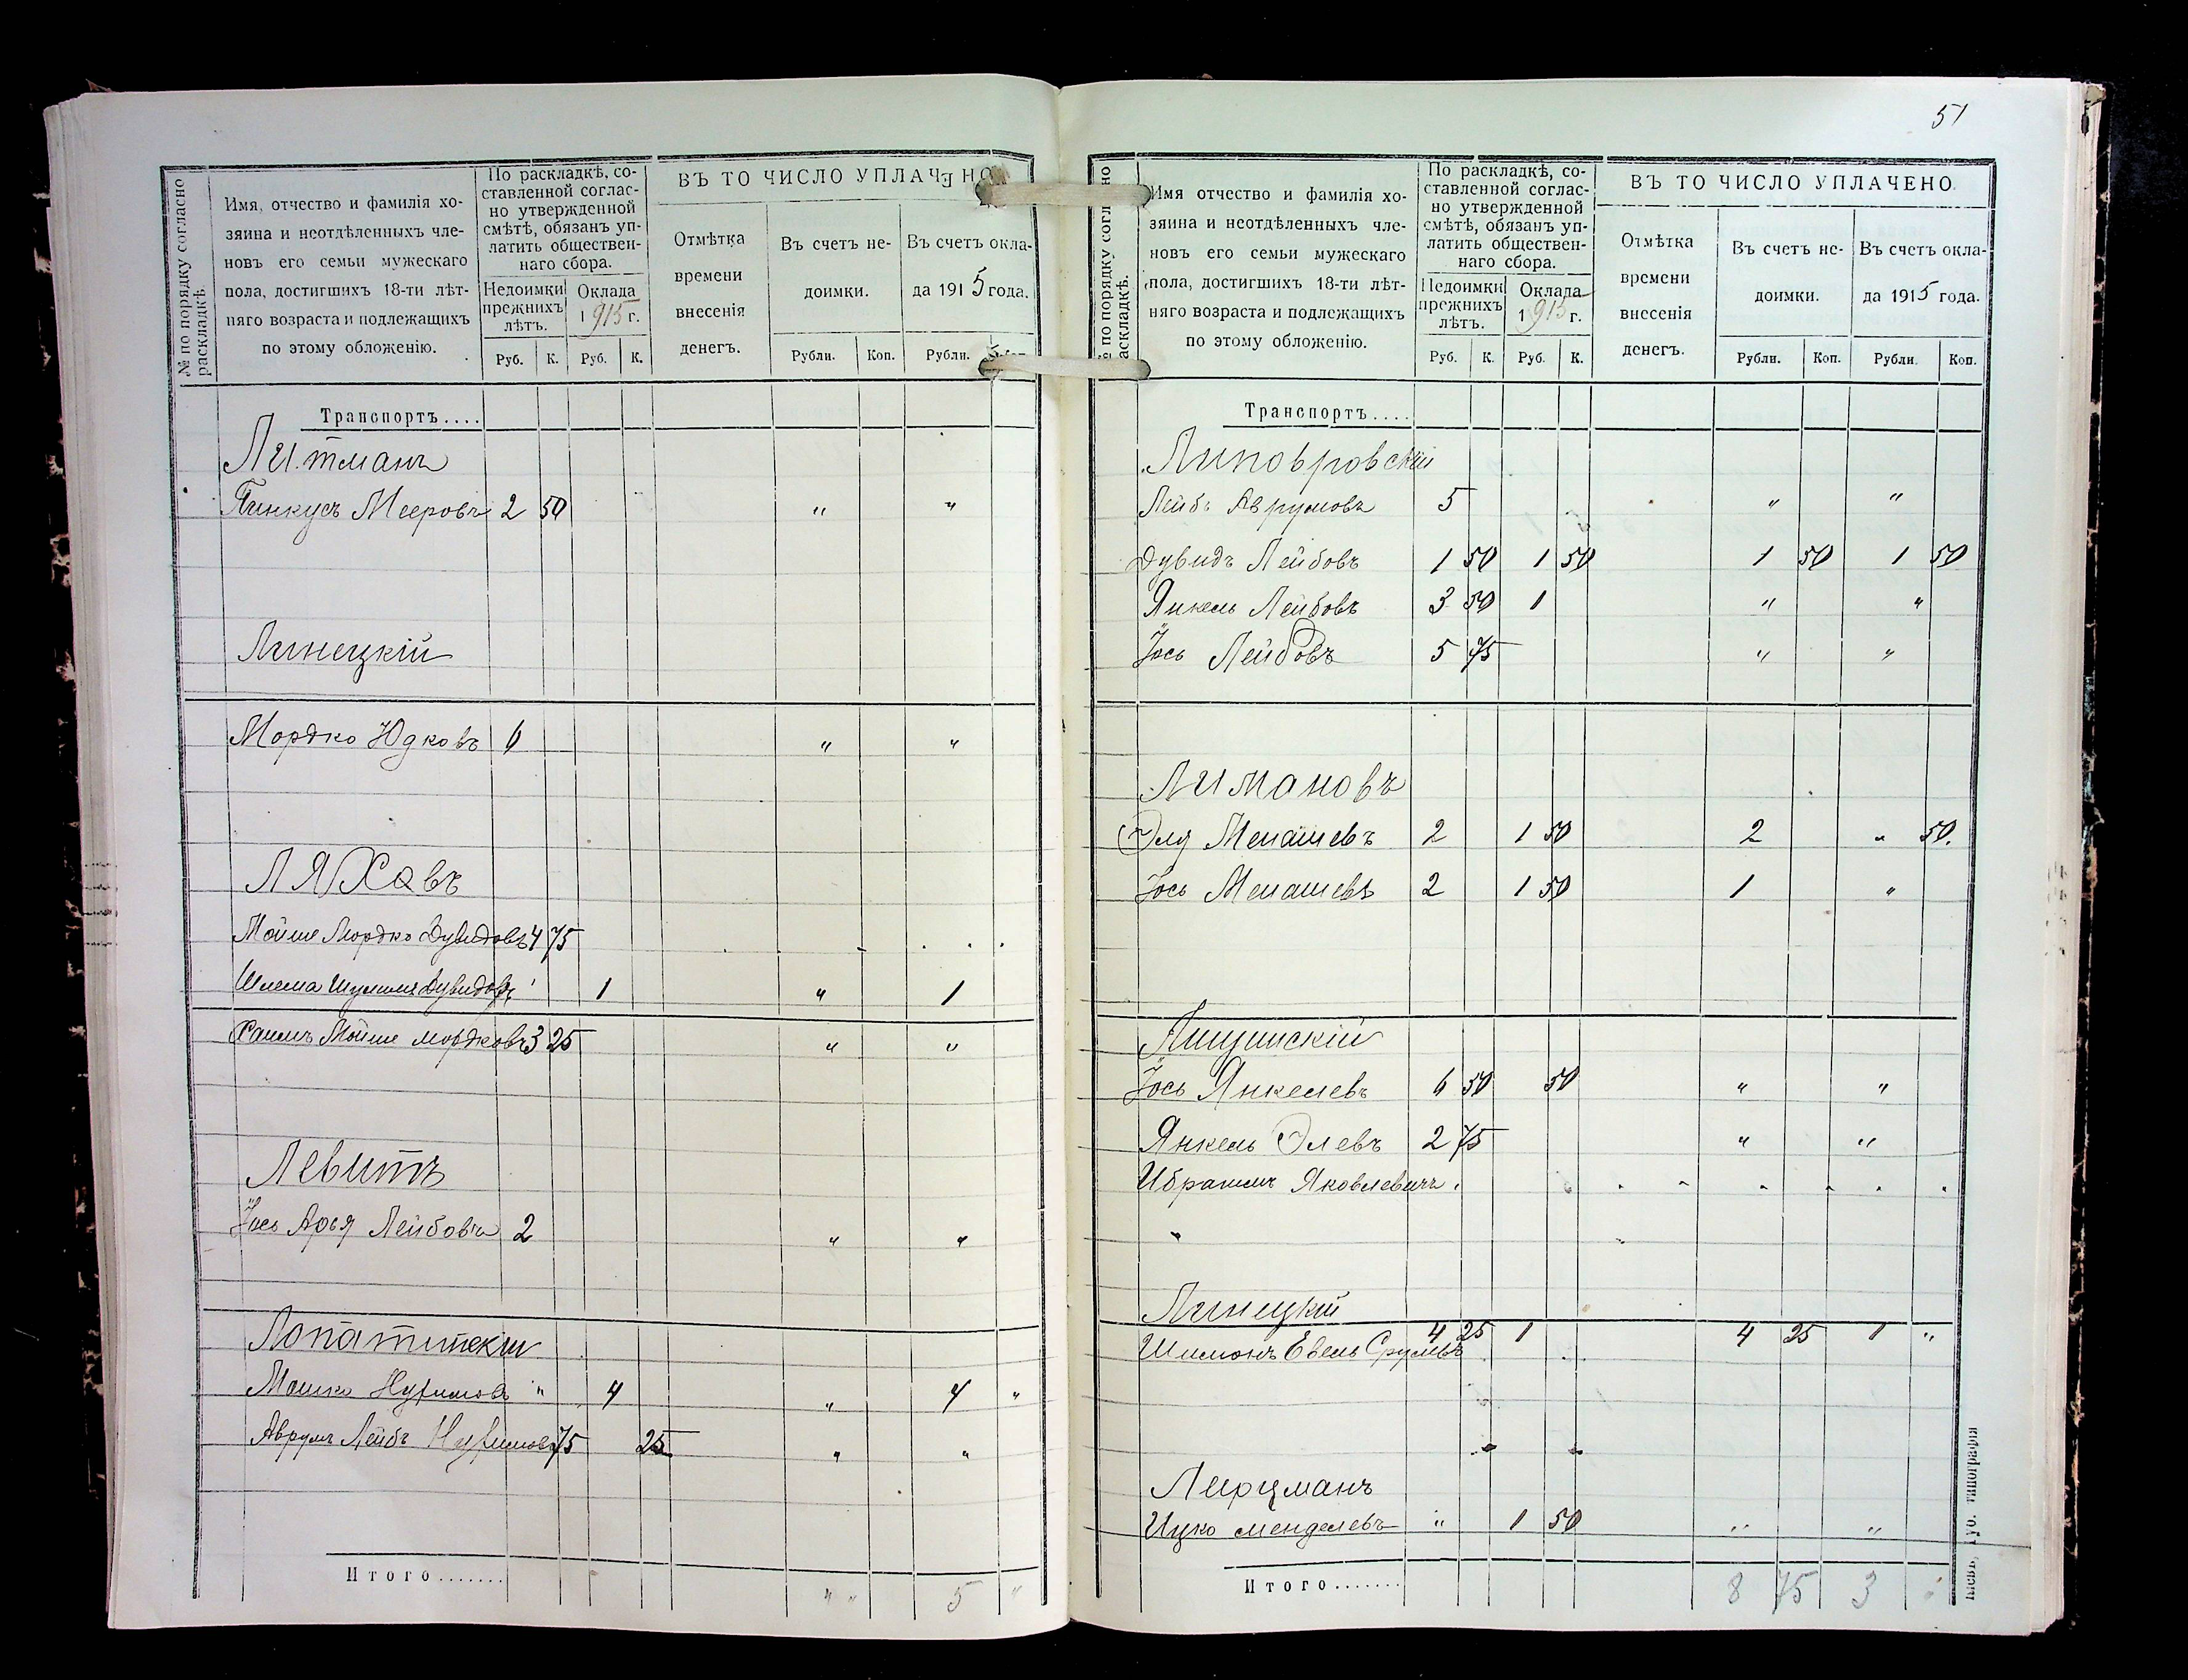 № по порядку согласно раскладкѣ.
Имя, отчество и фамилія хо-
зяина и неотдѣленныхъ чле-
новъ его семьи мужескаго
пола, достигшихъ 18-ти лѣт-
няго возраста и подлежащихъ
по этому обложенію.
По раскладкѣ, со-
ставленной соглас-
но утвержденной
смѣтѣ, обязанъ уп-
латить обществен-
наго сбора.
Недоимки
прежнихъ
лѣтъ.
Оклада
1915 г.
Руб. К. Руб. К.
ВЪ ТО ЧИСЛО УПЛАЧЕНО
Отмѣтка
времени
внесенія
денегъ.
Въ счетъ не-
доимки.
Въ счетъ окла-
да 1915 года.
Рубли. Коп. Рубли.
Транспортъ....
Литманъ
Пинкусъ Мееровъ 2 50 " "
Линецкій
Мордко Юдковъ 6 " "
ЛЯХовъ
Мойше Мордко Дувидовъ 4 75
Шлема Шулимъ Дувидовъ 1 " 1
Хаимъ Мойше Мордковъ 3 25 " "
Левитъ
Іось Арья Лейбовъ 2 " "
Мошко Нухимовъ " 4 " 4 "
Аврумъ Лейбъ Нухимовъ 75 25 " "
Итого.......
" " 5 "
51
№ по порядку согласно раскладкѣ.
Имя отчество и фамилія хо-
зяина и неотдѣленныхъ чле-
новъ его семьи мужескаго
пола, достигшихъ 18-ти лѣт-
няго возраста и подлежащихъ
по этому обложенію.
По раскладкѣ, со-
ставленной соглас-
но утвержденной
смѣтѣ, обязанъ уп-
латить обществен-
наго сбора.
Недоимки
прежнихъ
лѣтъ.
Оклада
1915 г.
Руб. К. Руб. К.
ВЪ ТО ЧИСЛО УПЛАЧЕНО.
Отмѣтка
времени
внесенія
денегъ.
Въ счетъ не-
доимки.
Въ счетъ окла-
да 1915 года.
Рубли. Коп. Рубли. Коп.
Транспортъ....
Лейбъ Аврумовъ 5 " "
Дувидъ Лейбовъ 1 50 1 50 1 50 1 50
Янкель Лейбовъ 3 50 1 " "
Іось Лейбовъ 5 75 " "
Лимановъ
Эля Менашевъ 2 1 50 2 " 50.
Іось Менашевъ 2 1 50 1 "
Лищинскій
Іось Янкелевъ 6 50 50 " "
Янкель Элевъ 2 75 " "
Яковлевичъ
Линецкій
Шимонъ Евель Срулевъ 4 25 1 4 25 1 "
Лерцманъ
Ицко Менделевъ " 1 50 " "
Итого.......
8 75 3
Кіевъ, Губ. типографія